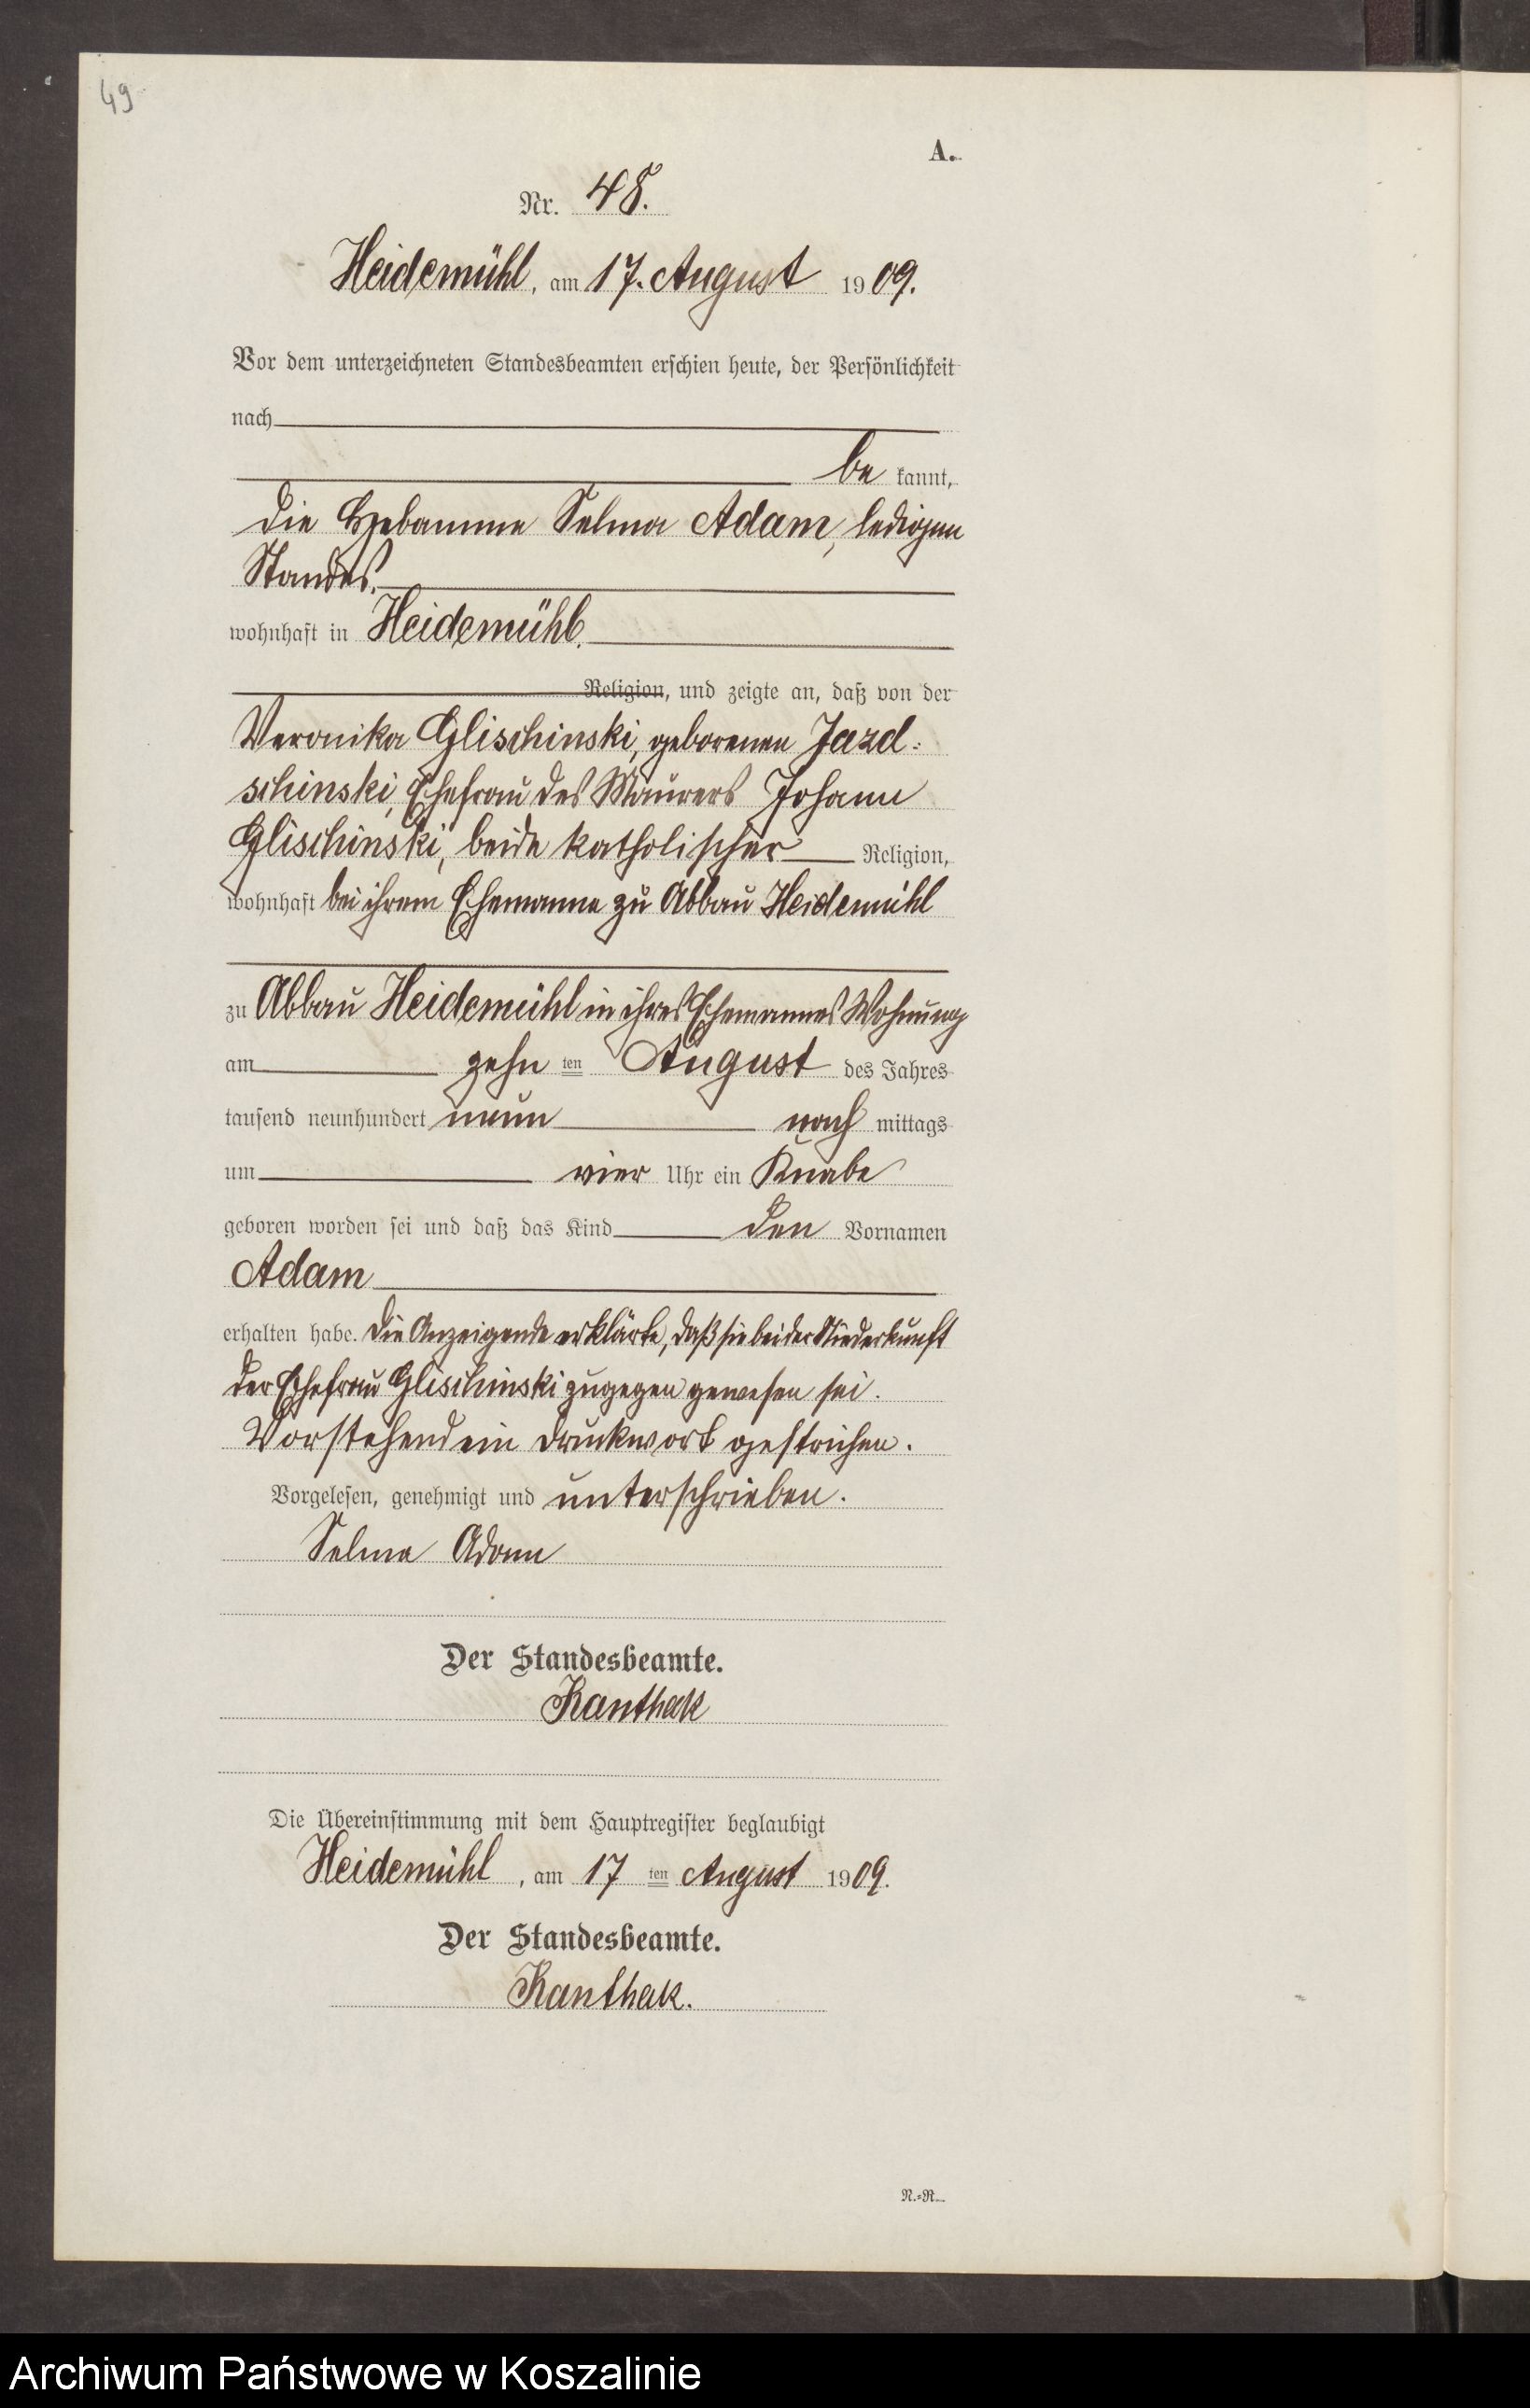 49
A.
Nr. 48.
Heidemühl, am 17. August 1909.
Vor dem unterzeichneten Standesbeamten erschien heute, der Persönlichkeit
nach
be kannt,
die Hebamme Selma Adam, ledigen
Standes,
wohnhaft in Heidemühl,
Religion, und zeigte an, daß von der
Veronika Glischinski, geborenen Jazd-
schinski, Ehefrau des Maurers Johann
Glischinski, beide katholischer Religion,
wohnhaft bei ihrem Ehemanne zu Abbau Heidemühl
zu Abbau Heidemühl in ihres Ehemannes Wohnung
am zehn ten August des Jahres
tausend neunhundert neun nach mittags
um vier Uhr ein Knabe
geboren worden sei und daß das Kind den Vornamen
Adam
erhalten habe. Die Anzeigende erklärte, daß sie bei der Niederkunft
der Ehefrau Glischinski zugegen gewesen sei.
Vorstehend ein Druckwort gestrichen.
Vorgelesen, genehmigt und unterschrieben.
Selma Adam
Der Standesbeamte.
Kanthak
Die Übereinstimmung mit dem Hauptregister beglaubigt
Heidemühl, am 17 ten August 1909.
Der Standesbeamte.
Kanthak.
N.=R.
Archiwum Państwowe w Koszalinie